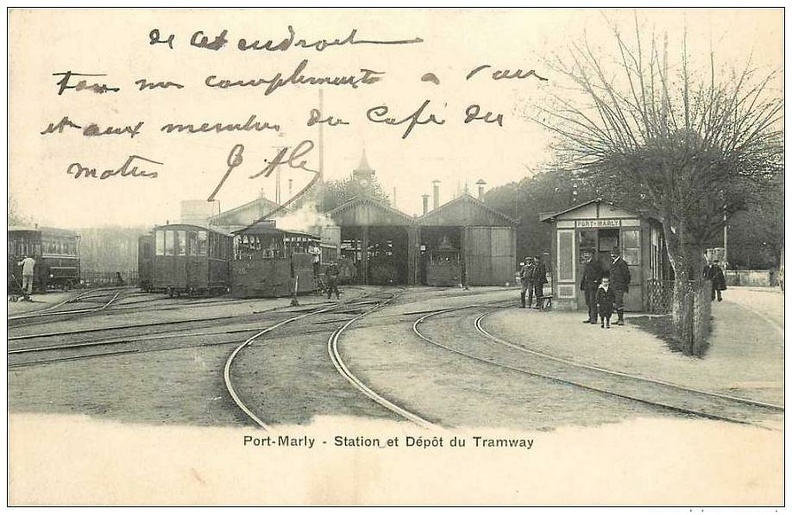 de cet endroit
tous nos compliments a
et aux membres du Café du
matus
PORT-MARLY
Port-Marly - Station et Dépôt du Tramway